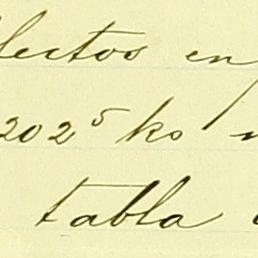 lectos en
202⁵ ko
tabla